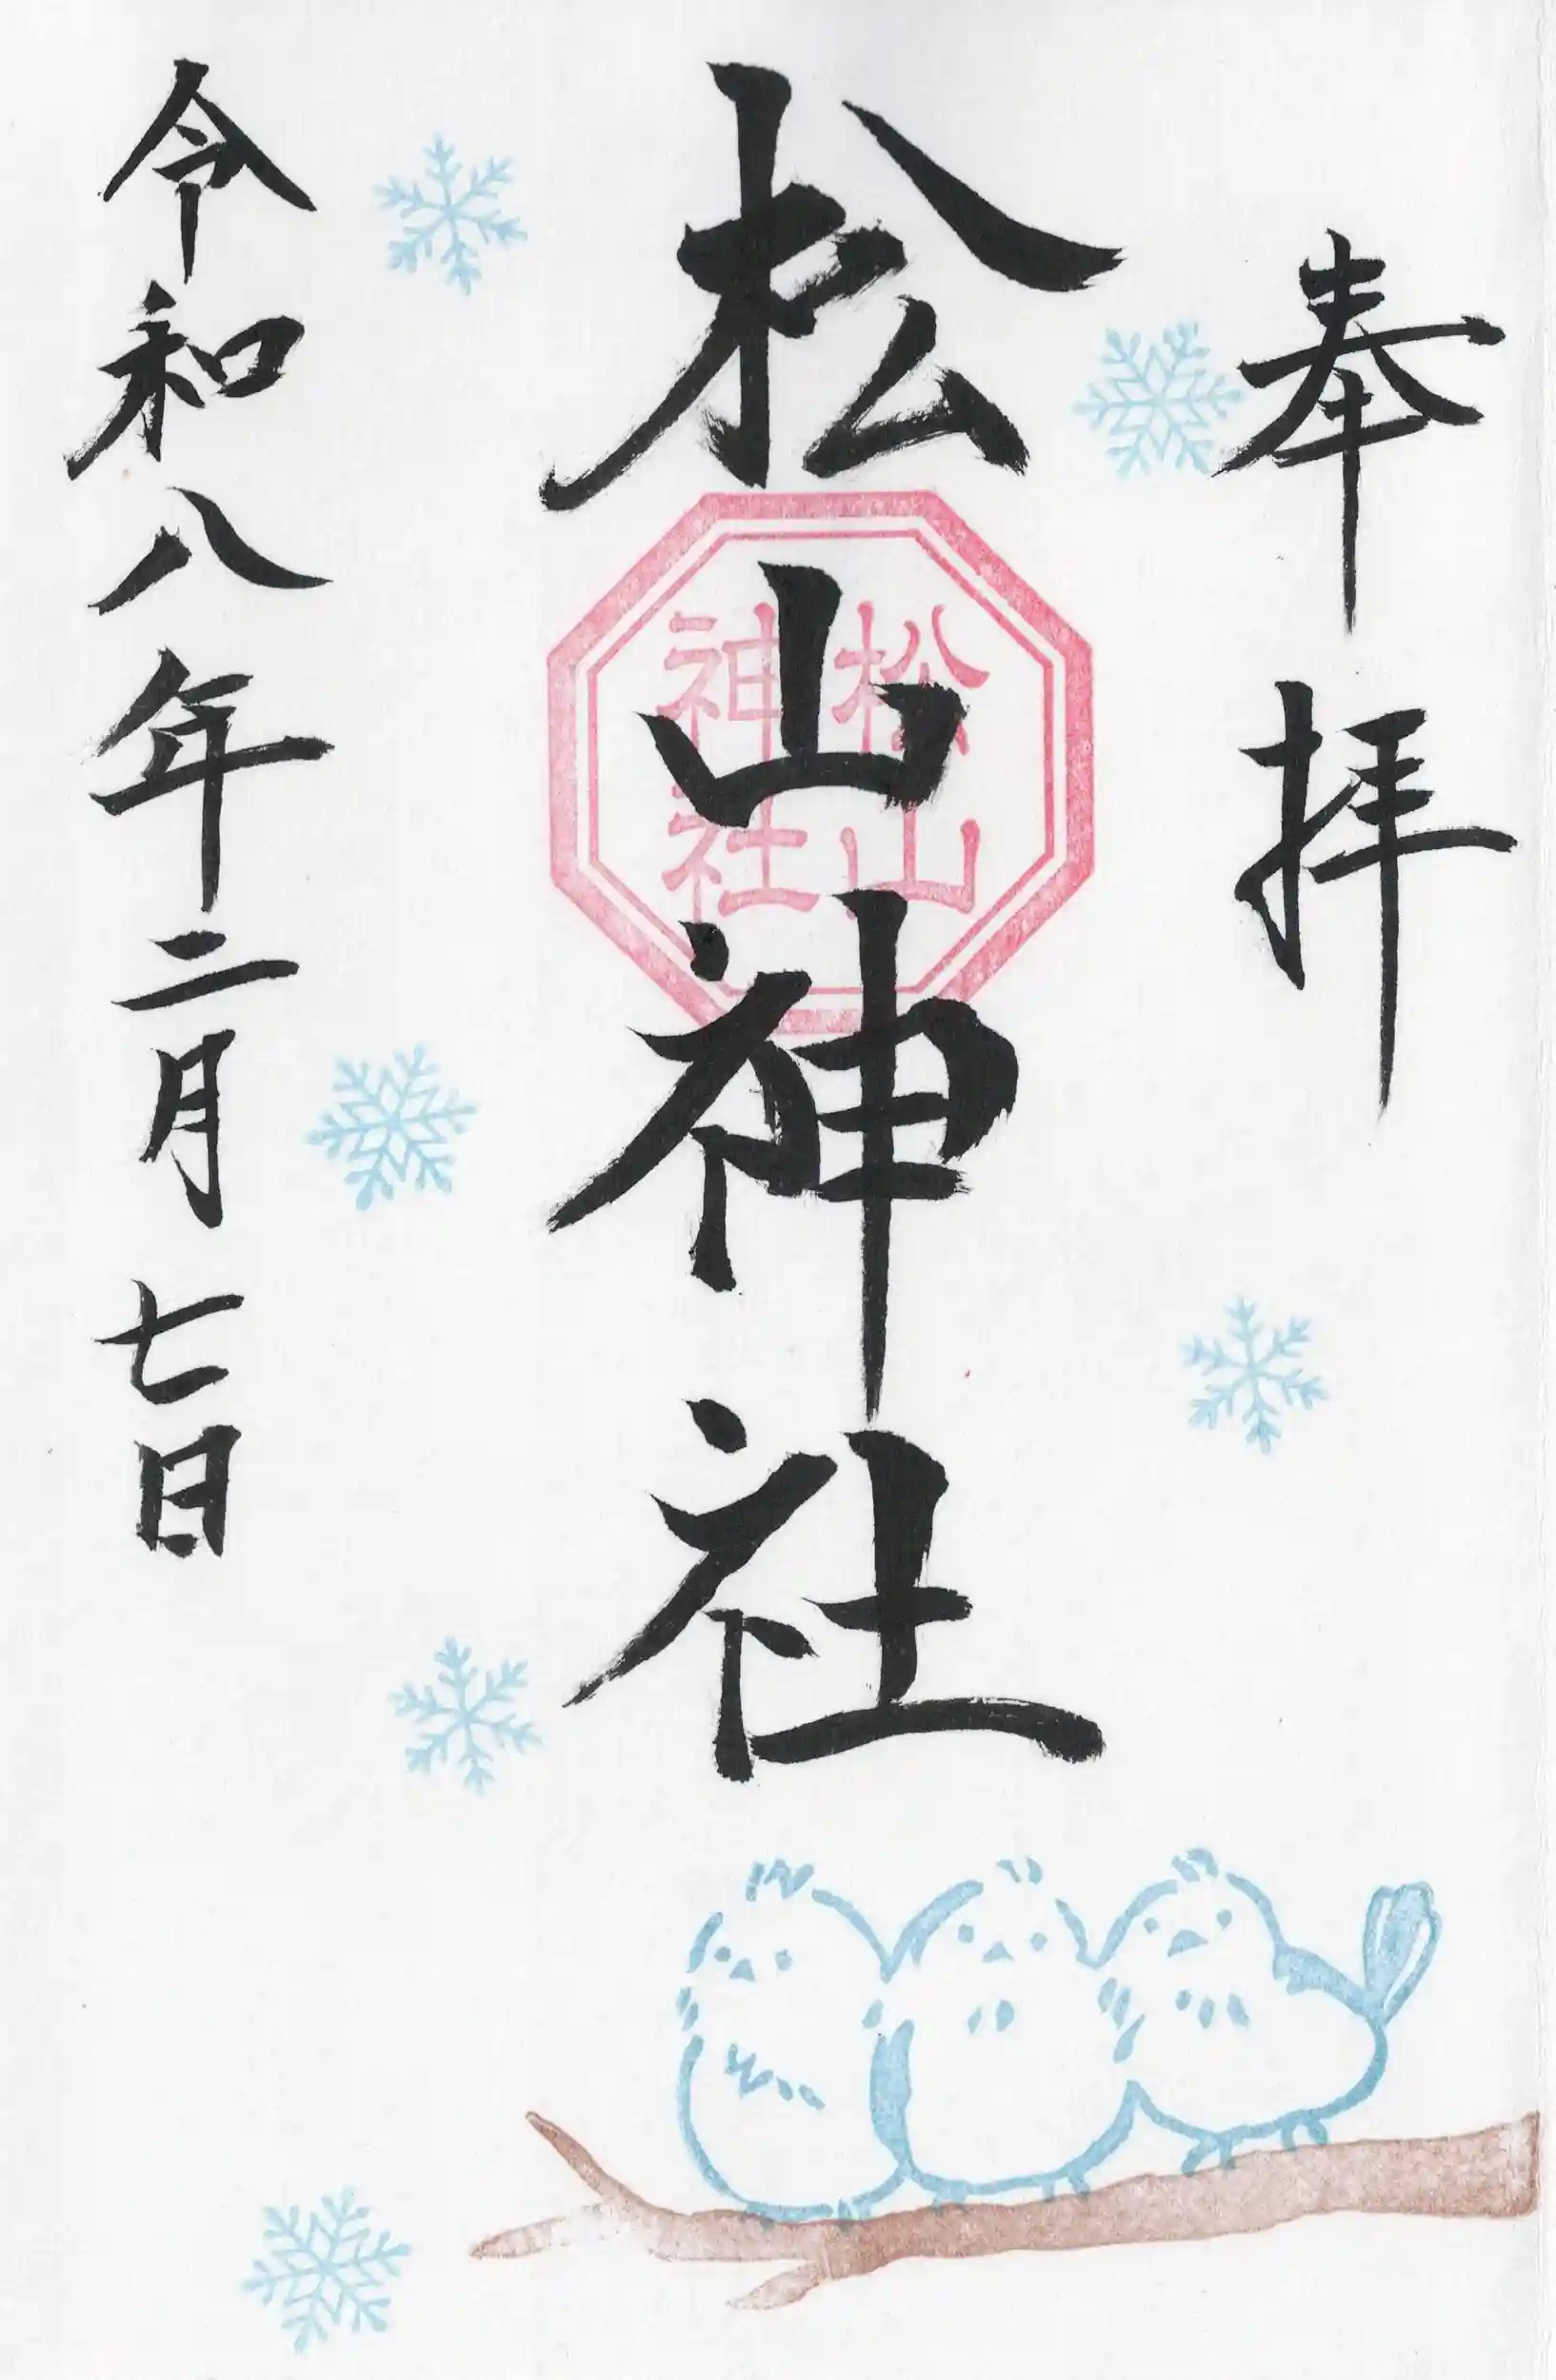 奉拝
松山神社
松山
神社
令和八年二月七日